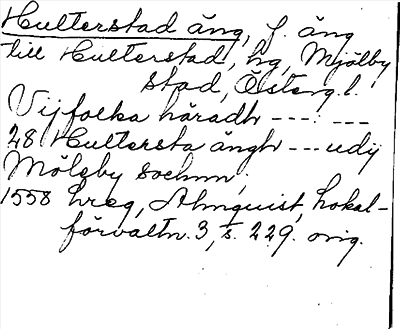 Hulterstad äng, f. äng
till Hulterstad, hg, Mjölby
stad, Österg. l.
Vijfolka häradh ---:---
28 Hultersta ängh --- udij
Mölsby sochnn;
1558 hreg, Almquist, Lokal-
förvaltn. 3, s. 229. orig.